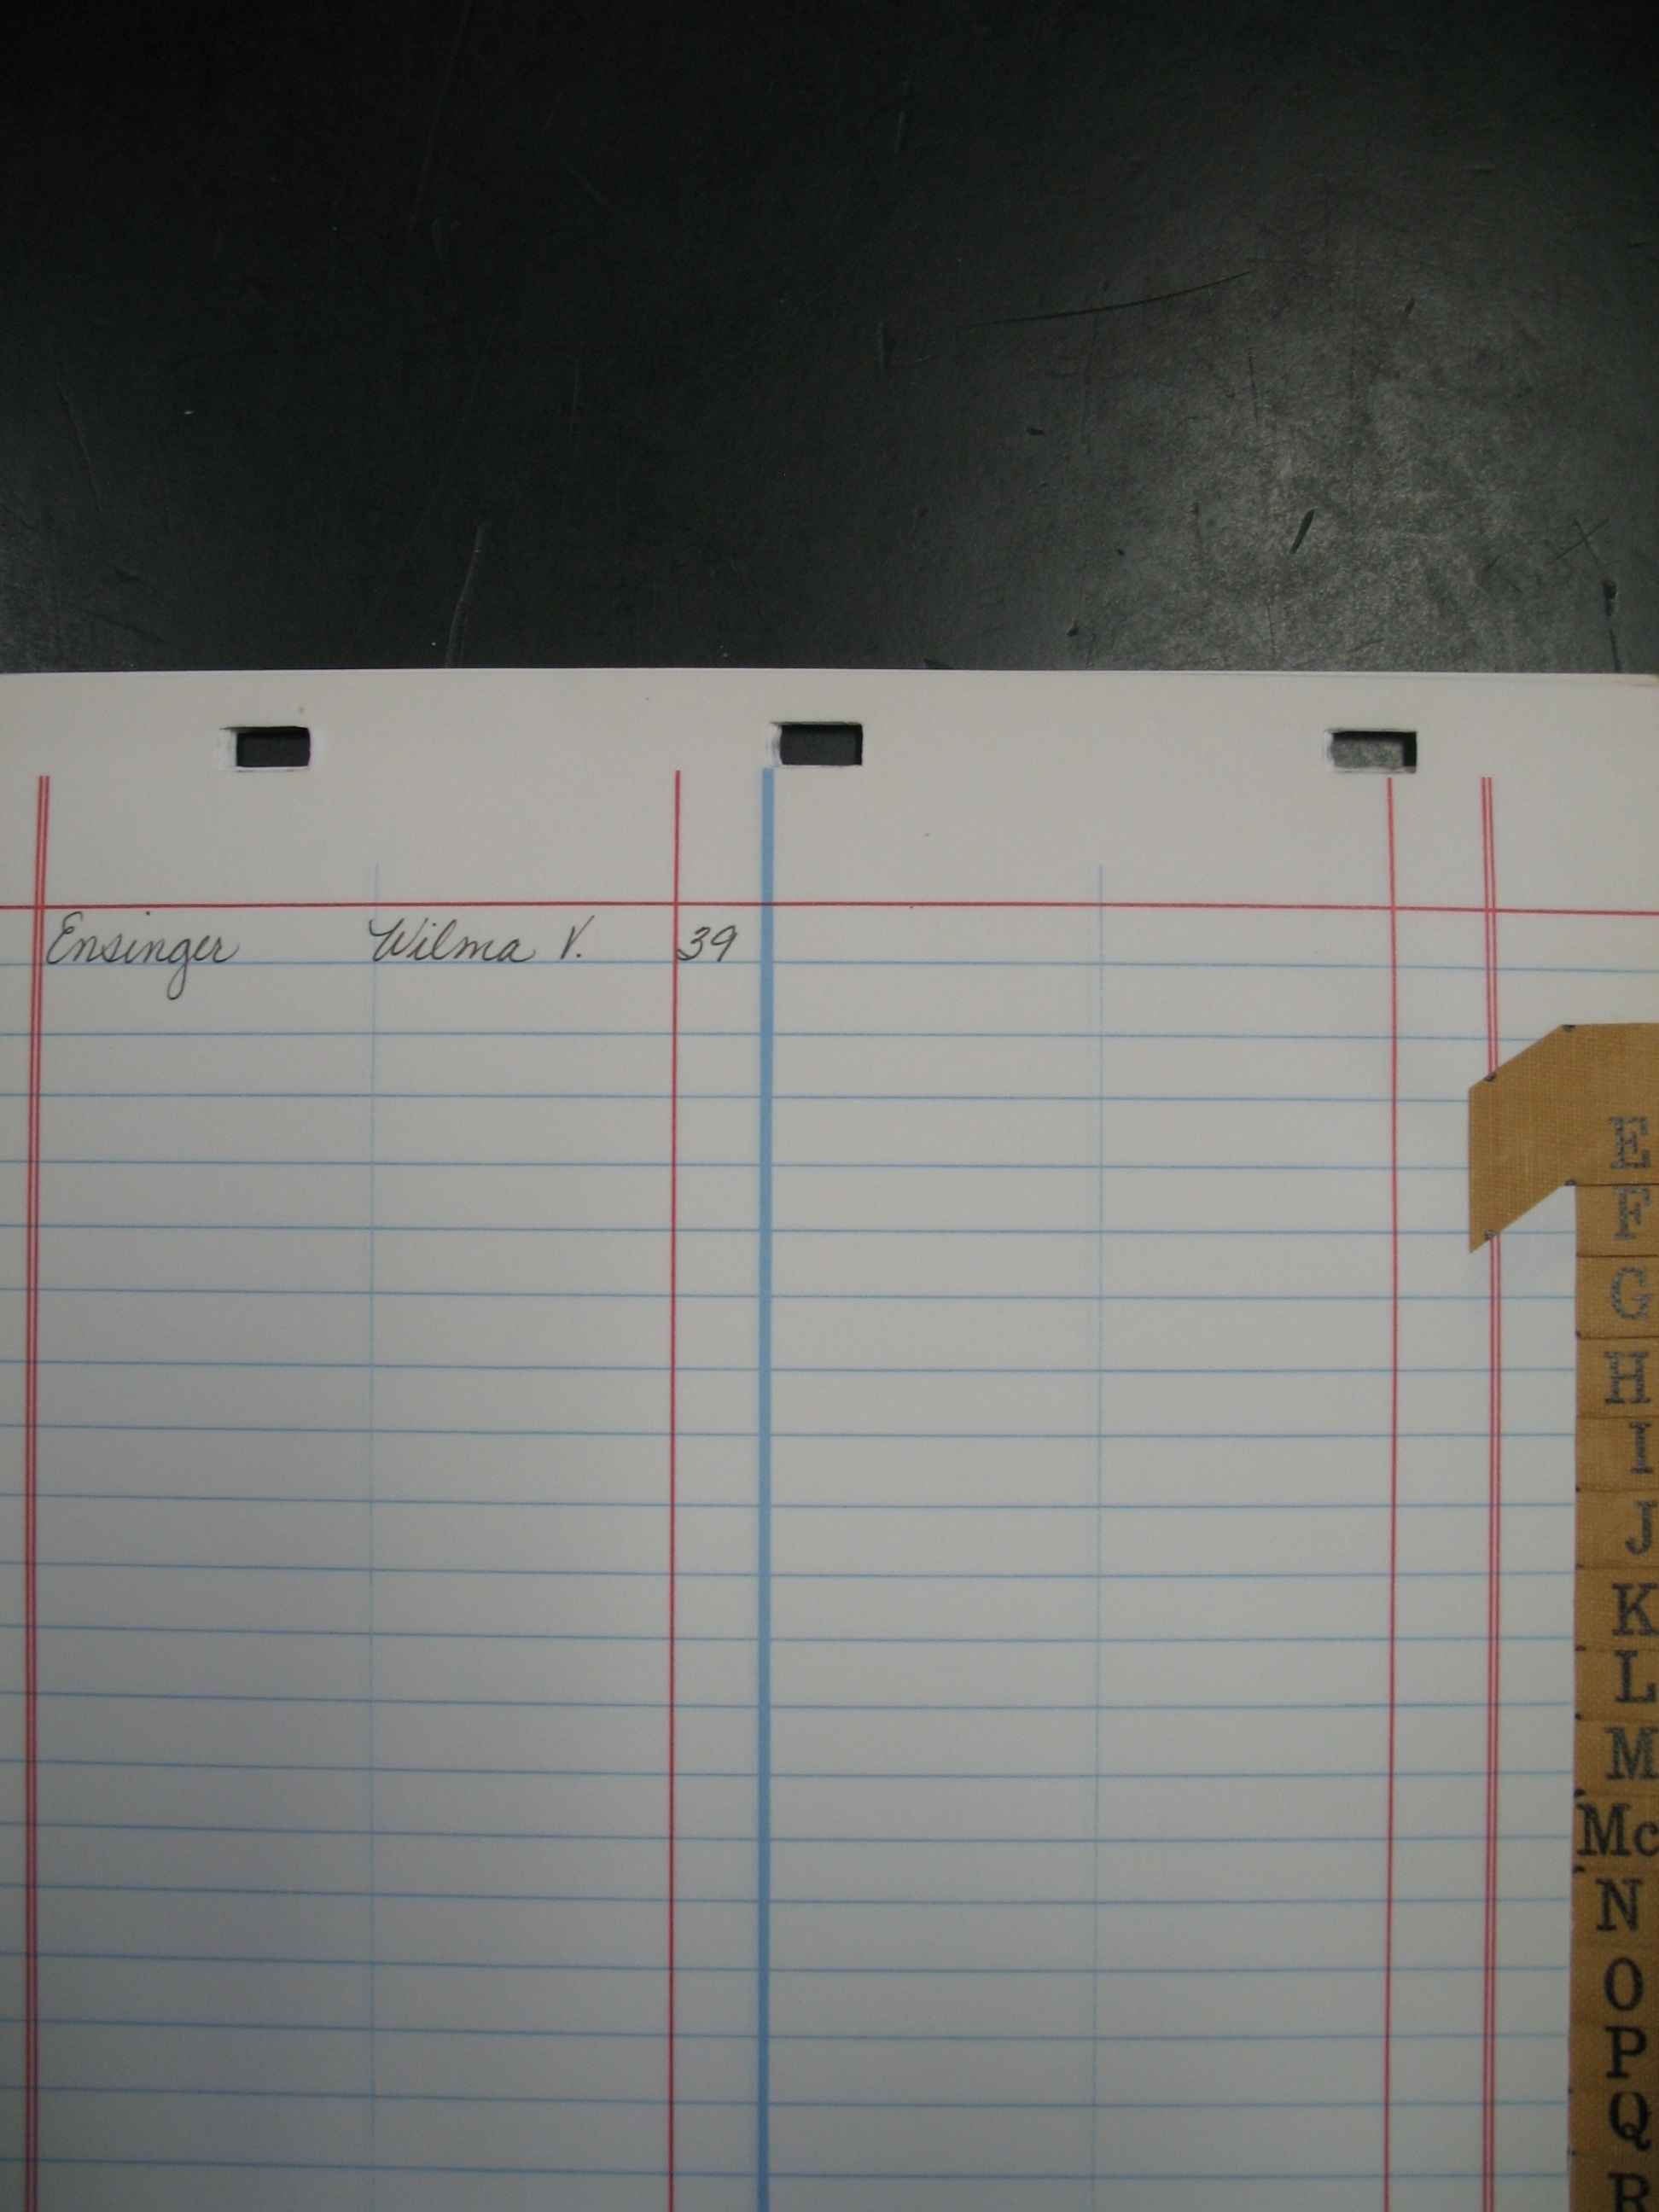 Ensinger Wilma V. 39
E
F
G
H
I
J
K
L
M
Mc
N
O
P
Q
R